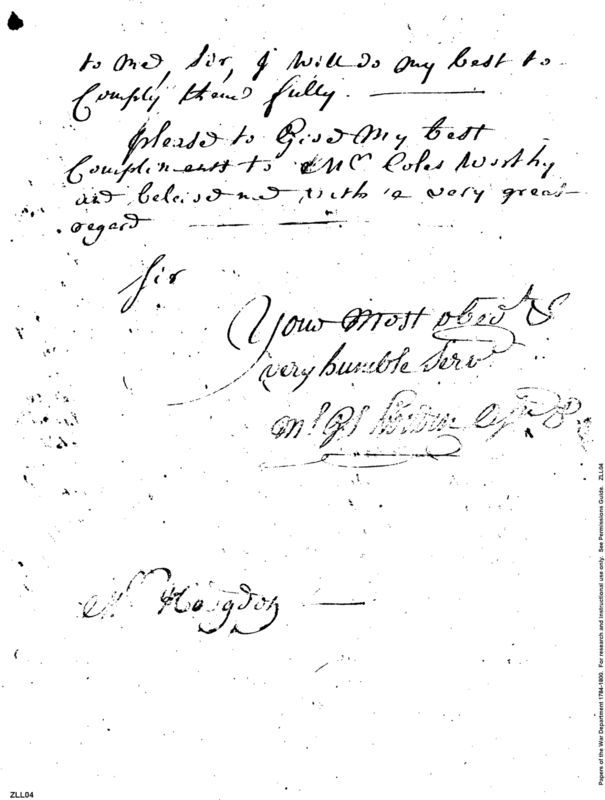 to me, Sir, I will do my best to
Comply them fully.
please to Give My best
Compliments to Mr Coles Worthy
and beleive me with a very great
regard
Sir
Your Most obedt &
very humble Serv
Mr Hodgdon
Papers of the War Department 1784-1800. For research and instructional use only. See Permissions Guide. ZLL04
ZLL04